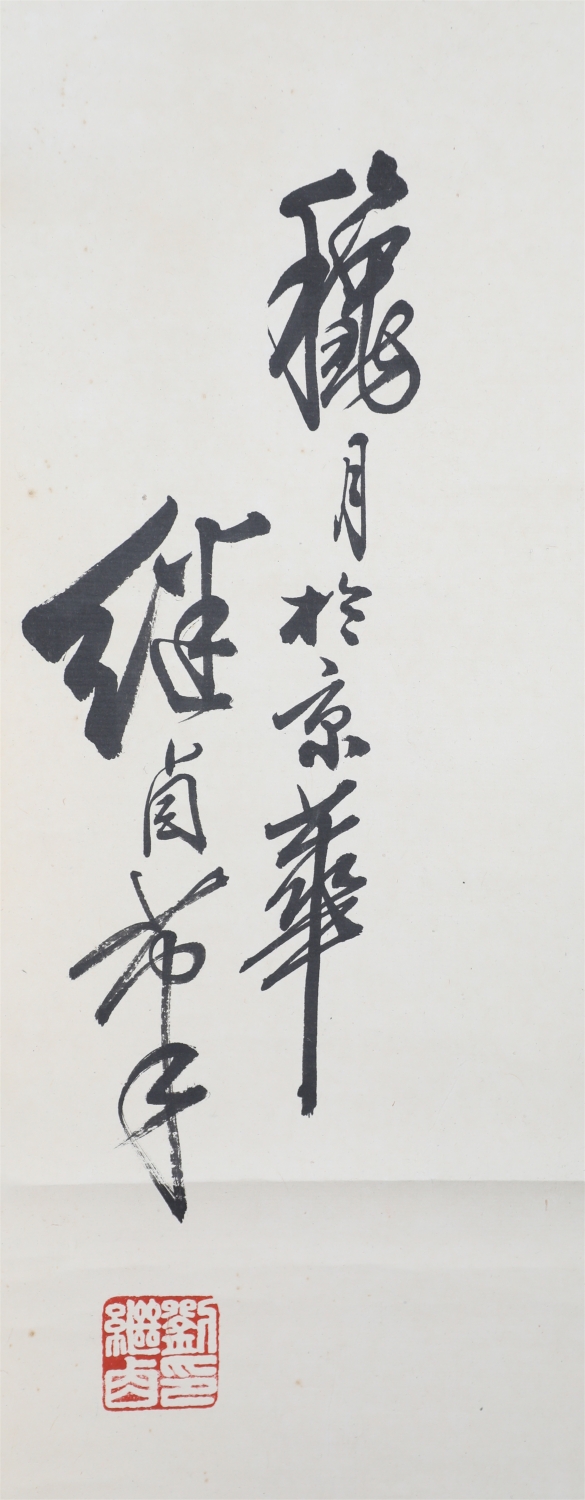 穐月於京華
继卣筆
劉印
繼卣